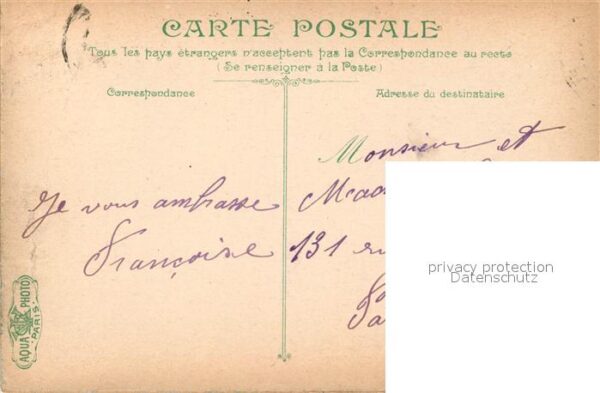 CARTE POSTALE
Tous les pays étrangers n'acceptent pas la Correspondance au recto
(Se renseigner à la Poste)
Correspondance
Adresse du destinataire
Je vous ambrasse
Françoise
Monsieur et
Mada
131 ru
Pa
AQUA PHOTO
PARIS
privacy protection
Datenschutz